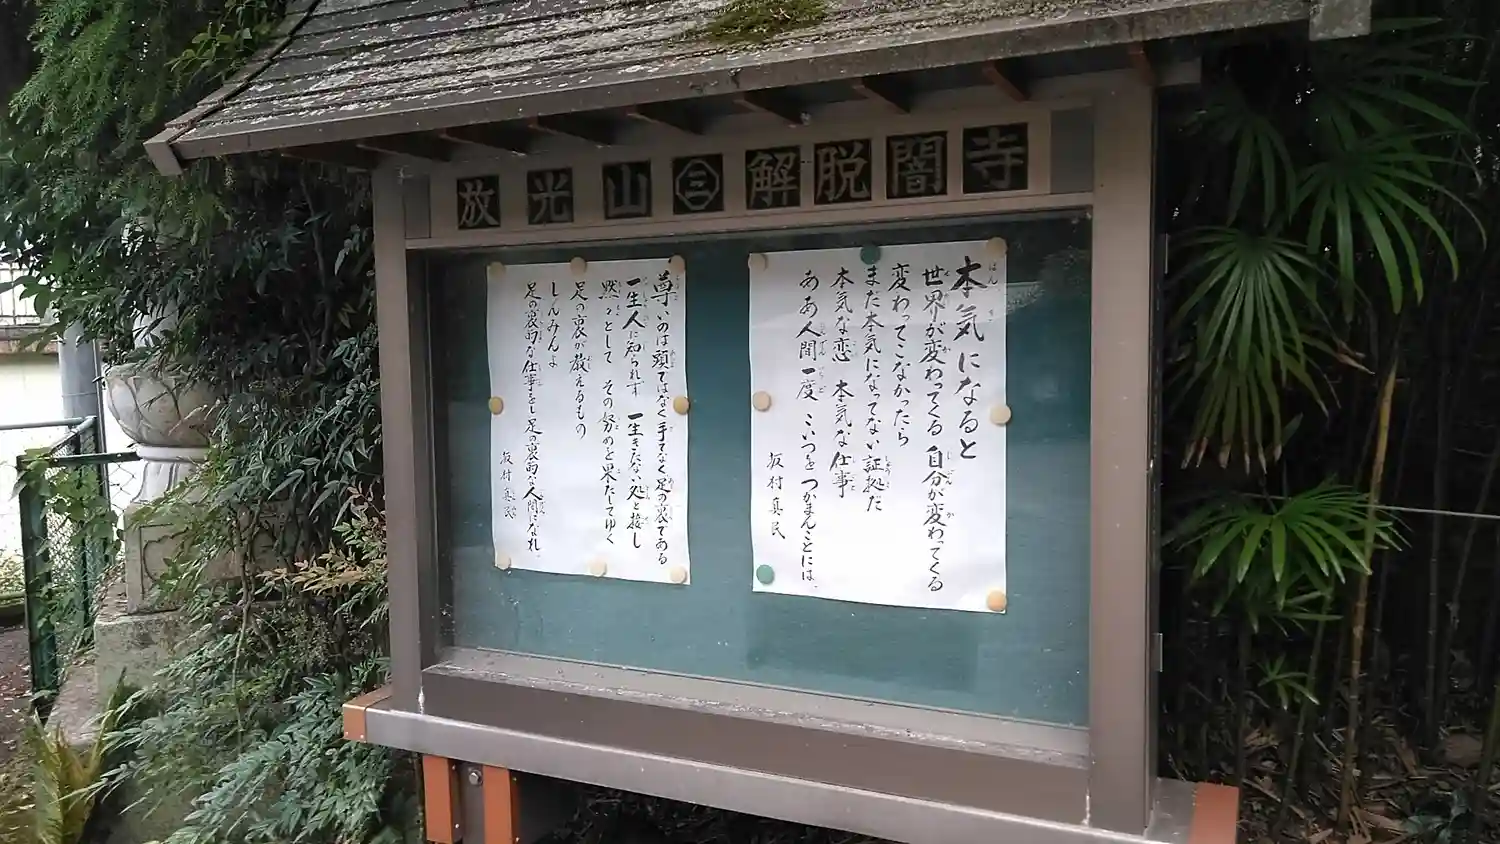 放光山 三 解脱闇寺
本気になると
世界が変わってくる 自分が変わってくる
変わってこなかったら
まだ本気になってない証拠だ
本気な恋 本気な仕事
ああ人間一度 こいつを つかまんことには。
坂村真民
尊いのは頭ではなく手でなく足の裏である
一生人に知られず 一生きたない処と接し
黙々として その努めを果たしてゆく
足の裏が教えるもの
しんみんよ
足の裏的な仕事をし足の裏的な人間になれ。
坂村真民